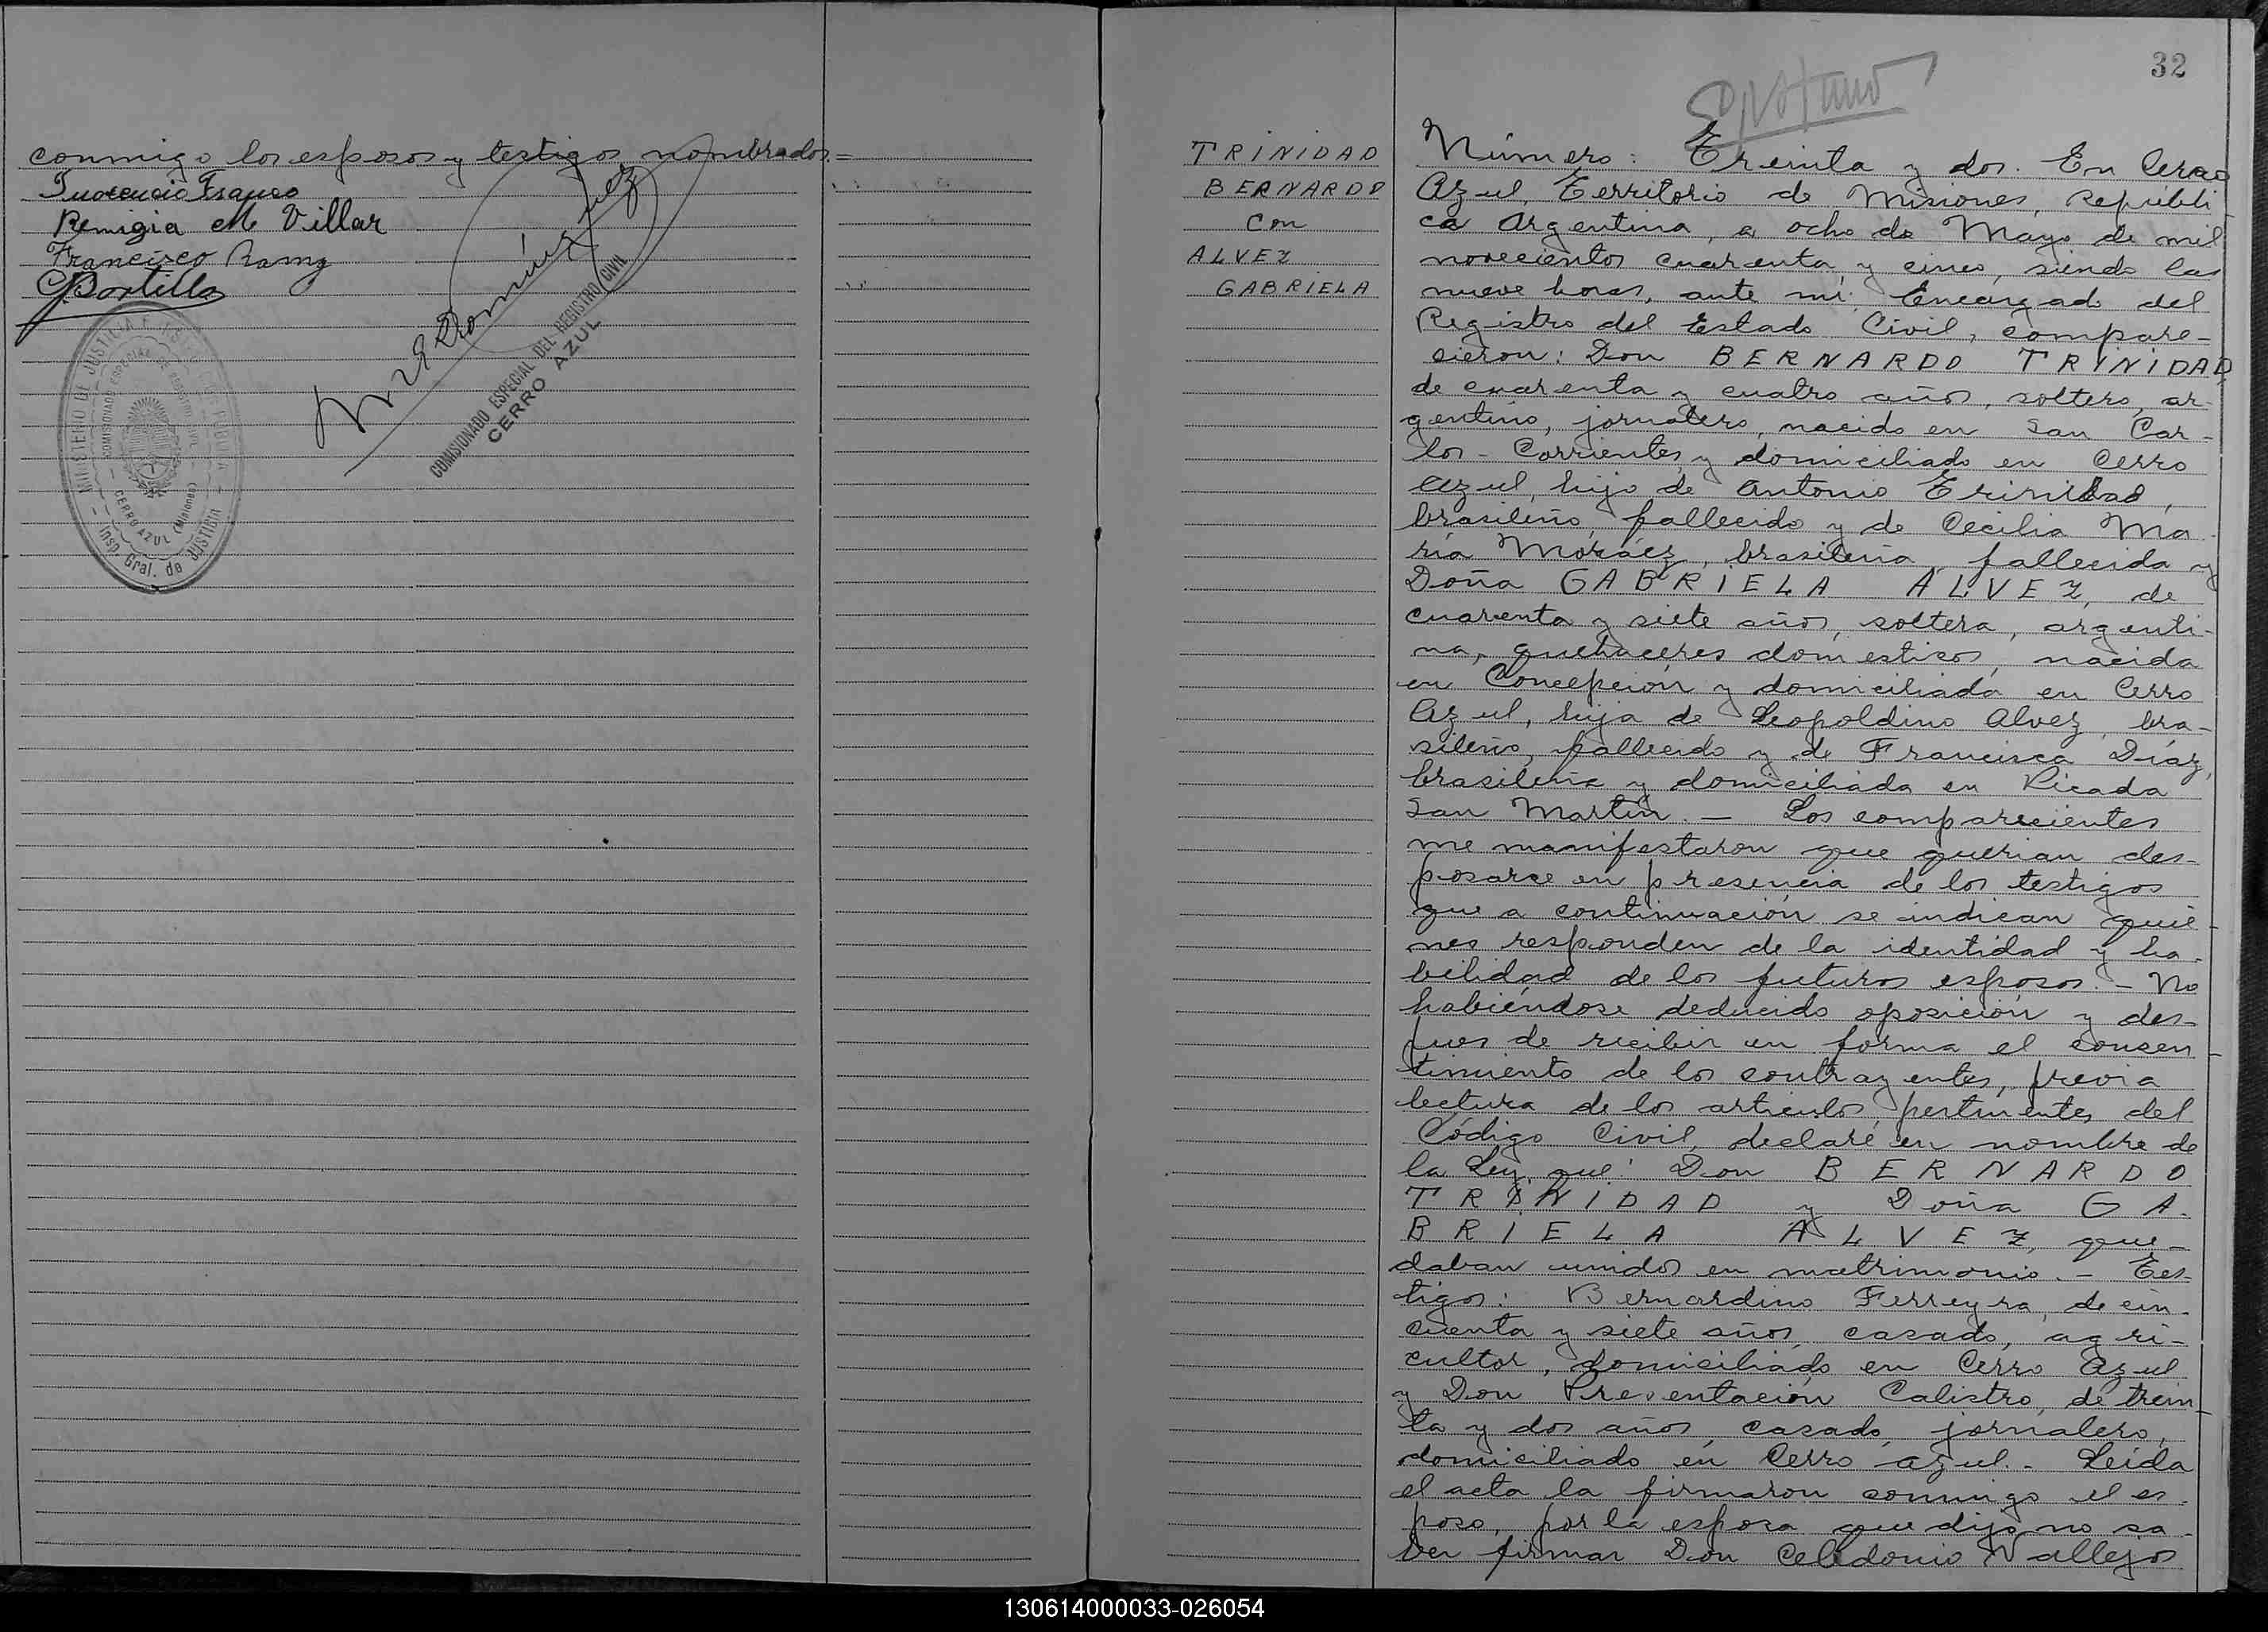 conmigo los esposos y testigos nombrados.=
Inocencio Franco
Remigia M Villar
Francisco Ramz
CBortillo
COMISIONADO ESPECIAL DEL REGISTRO CIVIL
CERRO AZUL
MINISTERIO DE JUSTICIA E
COMISIONADO ESPECIAL DE REGISTRO CIVIL
CERRO AZUL (Misiones)
Insp. Gral. de JUSTICIA
32
TRINIDAD
BERNARDO
Con
ALVEZ
GABRIELA
Número: Treinta y dos. En Cerro
Azul, Territorio de Misiones, Repúbli
ca Argentina, a ocho de Mayo de mil
novecientos cuarenta y cinco, siendo las
nueve horas, ante mí: Encargado del
Registro del Estado Civil, compare-
cieron: Don BERNARDO TRINIDAD
de cuarenta y cuatro años, soltero, ar-
gentino, jornalero, nacido en San Car-
los - Corrientes y domiciliado en Cerro
Azul, hijo de Antonio Trinidad,
brasileño, fallecido y de Cecilia Ma-
ría Moráez, brasileña, fallecida y
Doña GABRIELA ALVEZ, de
cuarenta y siete años, soltera, argenti-
na, quehaceres domesticos, nacida
en Concepción y domiciliada en Cerro
Azul, hija de Leopoldino Alvez, bra-
sileño, fallecido y de Francisca Díaz,
brasileña y domiciliada en Picada
San Martín. — Los comparecientes
me manifestaron que querian des-
posarse en presencia de los testigos
que a continuación se indican quie-
nes responden de la identidad y ha-
bilidad de los futuros esposos. - No
habiéndose deducido oposición y des-
pues de recibir en forma el consen-
timiento de los contrayentes, previa
lectura de los articulos pertinentes del
Código Civil, declaré en nombre de
la Ley que: Don BERNARDO
TRINIDAD y Doña GA-
BRIELA ALVEZ, que-
daban unidos en matrimonio. - Tes-
tigos: Bernardino Ferreyra, de cin-
cuenta y siete años, casado, agri-
cultor, domiciliado en Cerro Azul
y Don Presentación Calistro, de trein-
ta y dos años, casado, jornalero,
domiciliado en Cerro Azul. - Leida
el acta la firmaron conmigo el es-
poso, por la esposa que dijo no sa-
ber firmar Don Celedonio Vallejos
130614000033-026054